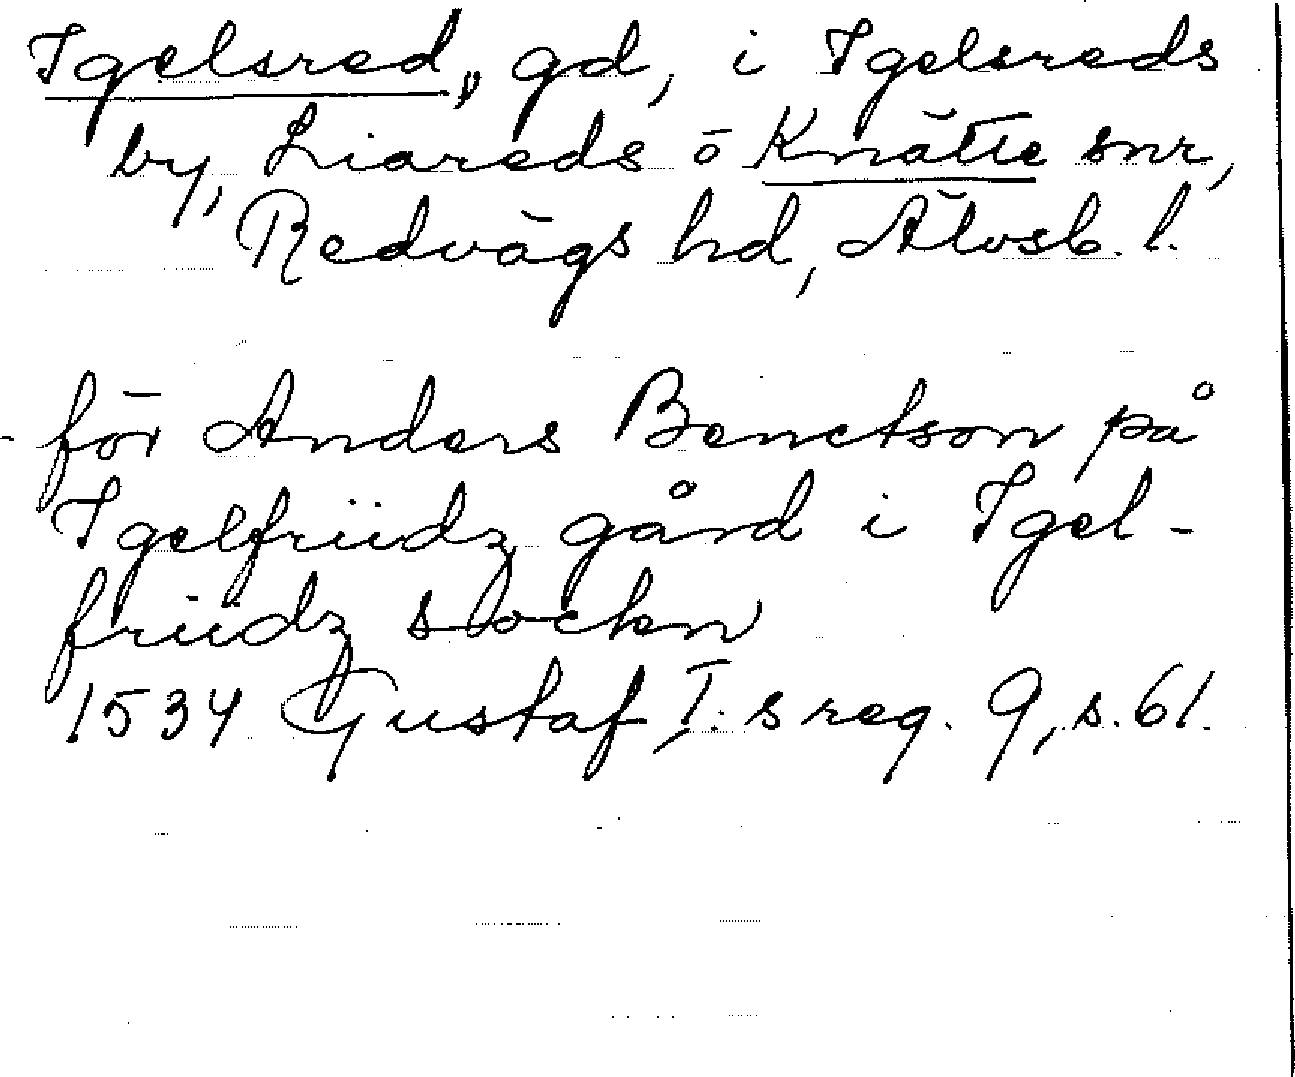 Igelsred, gd, i Igelsreds
by, Liareds o Knätte snr,
Redvägs hd, Älvsb. l.
för Anders Benctson på
Igelfriidz gård i Igel-
friidz sockn
1534 Gustaf I:s reg. 9, s. 61.